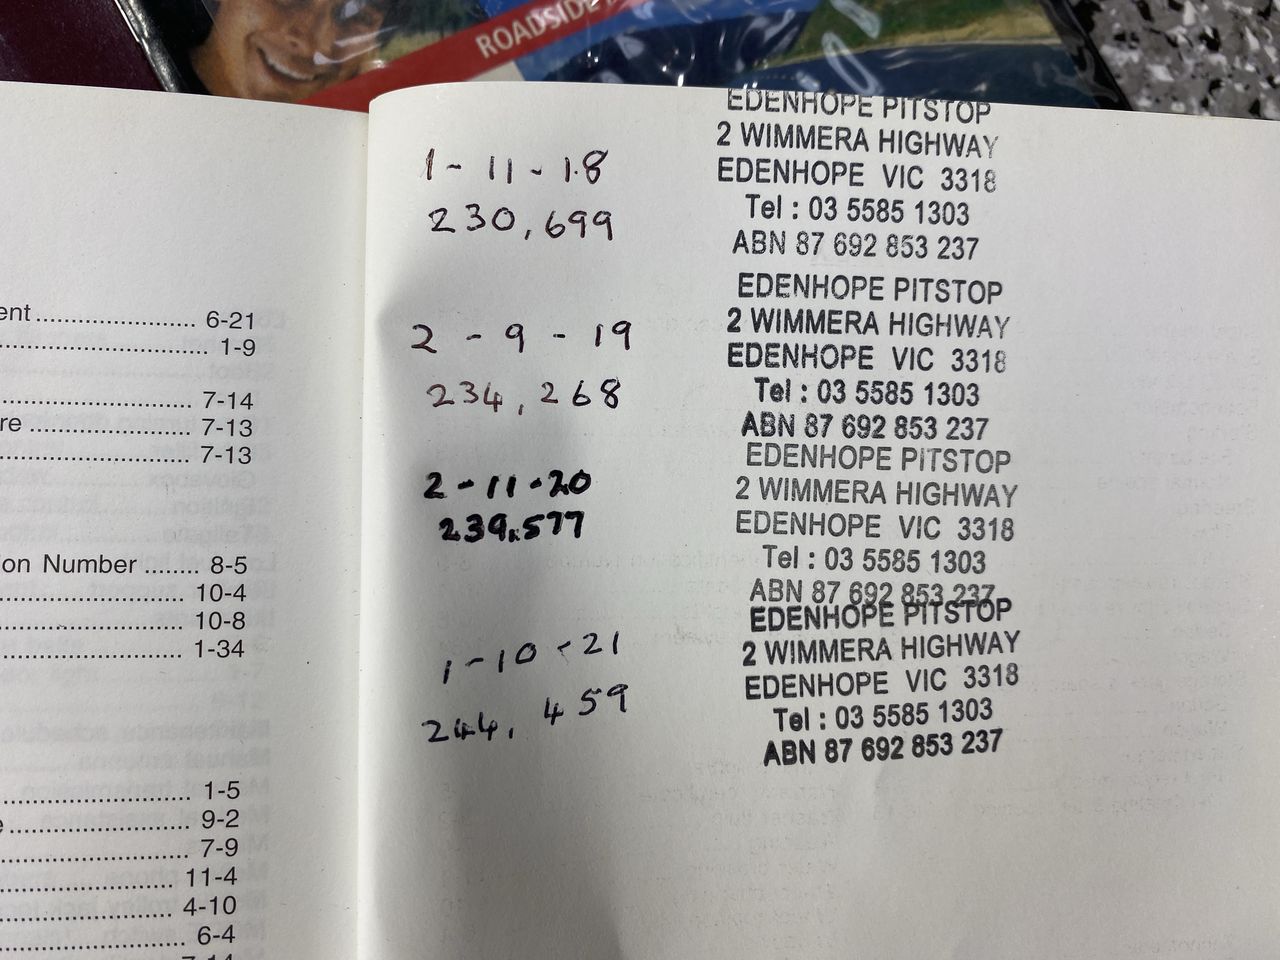 ROADSIDE
ent ........................ 6-21
........................ 1-9
........................ 7-14
re ........................ 7-13
........................ 7-13
ion Number ........ 8-5
........................ 10-4
........................ 10-8
........................ 1-34
........................ 1-5
........................ 9-2
........................ 7-9
........................ 11-4
........................ 4-10
........................ 6-4
1 - 11 - 18
230,699
EDENHOPE PITSTOP
2 WIMMERA HIGHWAY
EDENHOPE VIC 3318
Tel : 03 5585 1303
ABN 87 692 853 237
2 - 9 - 19
234,268
EDENHOPE PITSTOP
2 WIMMERA HIGHWAY
EDENHOPE VIC 3318
Tel : 03 5585 1303
ABN 87 692 853 237
2-11-20
239,577
EDENHOPE PITSTOP
2 WIMMERA HIGHWAY
EDENHOPE VIC 3318
Tel : 03 5585 1303
ABN 87 692 853 237
1-10-21
244,459
EDENHOPE PITSTOP
2 WIMMERA HIGHWAY
EDENHOPE VIC 3318
Tel : 03 5585 1303
ABN 87 692 853 237